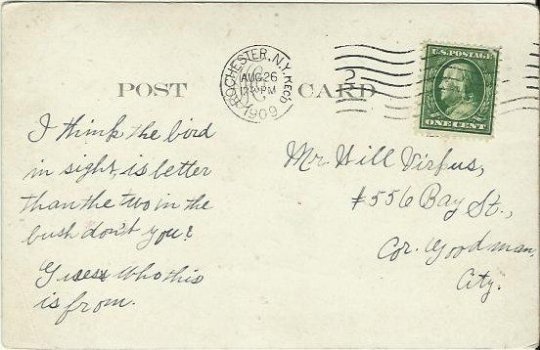 POST CARD
ROCHESTER, N.Y. REC'D
AUG 26
12 PM
1909
U.S. POSTAGE
ONE CENT
I think the bird
in sight, is better
than the two in the
bush don't you?
Guess who this
is from.
Mr. Will Virfus,
#556 Bay St.,
Cor. Goodman,
City.